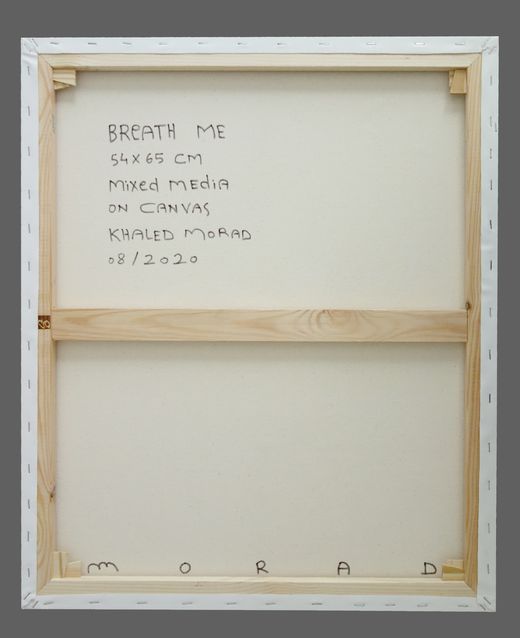 BReATH ME
54x65 CM
Mixed MEDiA
ON CANVAS
KHALED MORAD
08/2020
MORAD